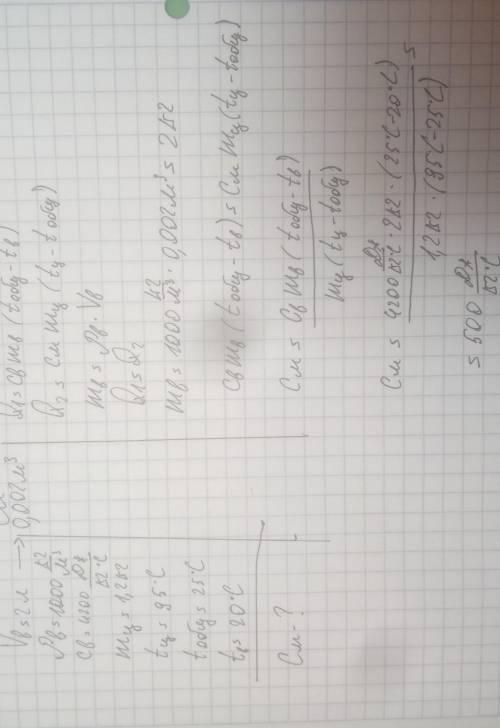 Си
Vв = 2 л → 0,002 м³
ρв = 1000 кг/м³
cв = 4200 Дж/кг·°C
mц = 1,2 кг
tц = 95°C
tобщ = 25°C
tв = 20°C
Cм - ?
Q₁ = cв mв (tобщ - tв)
Q₂ = cм mц (tц - tобщ)
mв = ρв · Vв
Q₁ = Q₂
mв = 1000 кг/м³ · 0,002 м³ = 2 кг
Cв mв (tобщ - tв) = Cм mц (tц - tобщ)
Cм = Cв mв (tобщ - tв) / mц (tц - tобщ)
Cм = 4200 Дж/кг°C · 2 кг · (25°C - 20°C) / 1,2 кг · (95°C - 25°C) =
= 500 Дж/кг°C